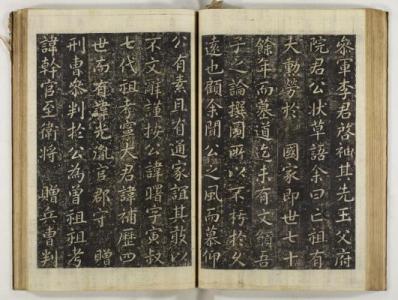 參軍李君啓神其先王父府
院君公狀草語余曰亡祖有
大勳勞於 國家即世七十
餘年而墓道迄未有文須吾
子之論撰圖所以不朽於久
遠也顧余聞公之風而慕仰
公有素且有通家誼其敢以
不文辭謹按公諱曙字寅叔
七代祖孝寧大君諱補歷四
世而有諱光胤官郡守 贈
刑曹參判於公為曾祖祖考
諱幹官至衛將 贈兵曹判